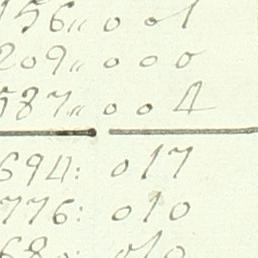 156„ 0 01
209„ 0 0 0
587„ 0 0 4
694: 017
776: 010